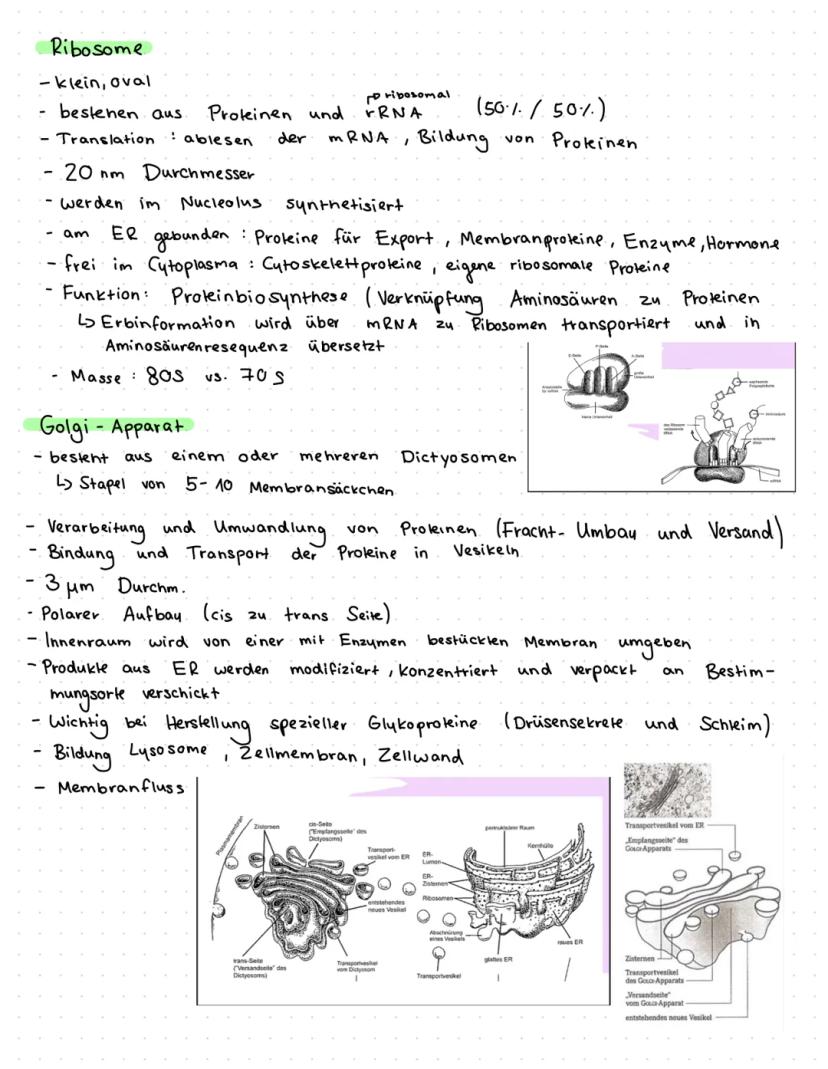 Ribosome
- klein, oval
→ ribosomal
- bestehen aus Proteinen und rRNA (50% / 50%)
- Translation : ablesen der mRNA, Bildung von Proteinen
- 20 nm Durchmesser
- werden im Nucleolus synthetisiert
- am ER gebunden : Proteine für Export, Membranproteine, Enzyme, Hormone
- frei im Cytoplasma : Cytoskelettproteine, eigene ribosomale Proteine
- Funktion: Proteinbiosynthese (Verknüpfung Aminosäuren zu Proteinen
↳ Erbinformation wird über mRNA zu Ribosomen transportiert und in
Aminosäurenresequenz übersetzt
- Masse : 80S vs. 70S
P-Seite
E-Seite
A-Seite
große Untereinheit
kleine Untereinheit
wachsende Polypeptidkette
Aminosäure
mRNA
Golgi - Apparat
- besteht aus einem oder mehreren Dictyosomen
↳ Stapel von 5-10 Membransäckchen
- Verarbeitung und Umwandlung von Proteinen (Fracht- Umbau und Versand)
- Bindung und Transport der Proteine in Vesikeln
- 3 µm Durchm.
- Polarer Aufbau (cis zu trans Seite)
- Innenraum wird von einer mit Enzymen bestückten Membran umgeben
- Produkte aus ER werden modifiziert, konzentriert und verpackt an Bestim-
mungsorte verschickt
- Wichtig bei Herstellung spezieller Glykoproteine (Drüsensekrete und Schleim)
- Bildung Lysosome, Zellmembran, Zellwand
- Membranfluss
Plasmamembran
Zisternen
cis-Seite
("Empfangsseite" des
Dictyosoms)
Transport-
vesikel vom ER
entstehendes
neues Vesikel
trans-Seite
("Versandseite" des
Dictyosoms)
Transportvesikel
vom Dictyosom
perinukleärer Raum
Kernhülle
ER-
Lumen
ER-
Zisternen
Ribosomen
Abschnürung
eines Vesikels
Transportvesikel
glattes ER
raues ER
Transportvesikel vom ER
„Empfangsseite“ des
Golgi-Apparats
Zisternen
Transportvesikel
des Golgi-Apparats
„Versandseite“
vom Golgi-Apparat
entstehendes neues Vesikel